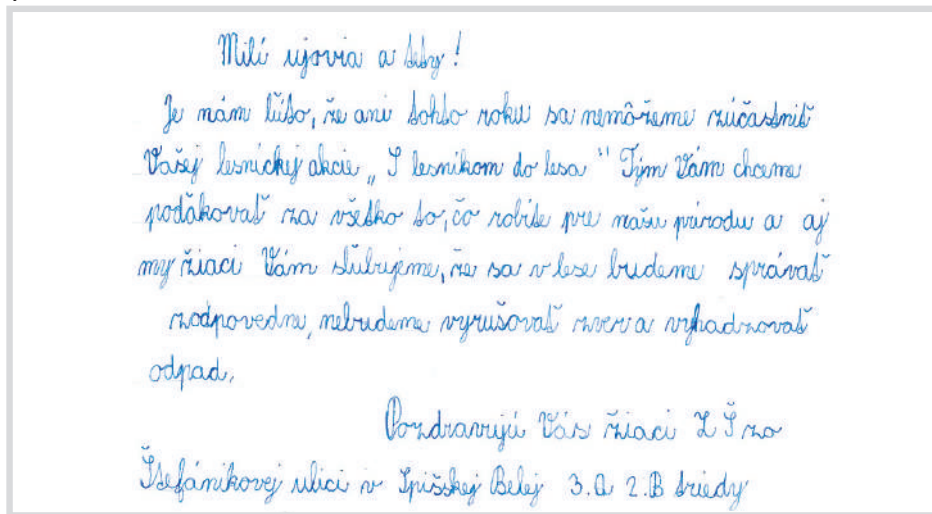 Milí ujovia a tety!
Je nám ľúto, že ani tohto roku sa nemôžeme zúčastniť
Vašej lesníckej akcie „S lesníkom do lesa" Tým Vám chceme
poďakovať za všetko to, čo robíte pre našu prírodu a aj
my žiaci Vám sľubujeme, že sa v lese budeme správať
zodpovedne, nebudeme vyrušovať zver a vyhadzovať
odpad.
Pozdravujú Vás žiaci ZŠ zo
Štefánikovej ulici v Spišskej Belej 3.A 2.B triedy